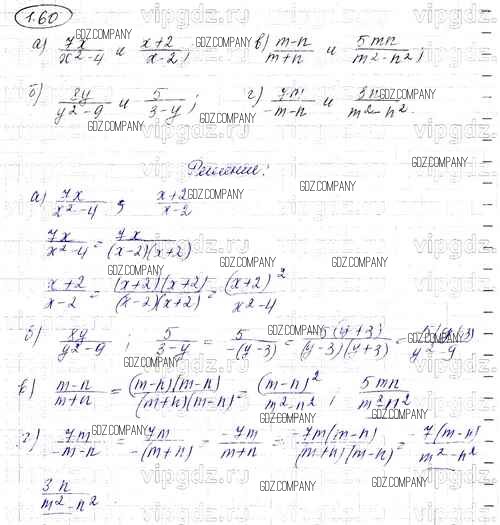 1.60
а) 7x/(x²-4) и (x+2)/(x-2); в) (m-n)/(m+n) и 5mn/(m²-n²);
б) 8y/(y²-9) и 5/(3-y); г) 7m/(-m-n) и 3n/(m²-n²).
Решение:
а) 7x/(x²-4) ; (x+2)/(x-2)
7x/(x²-4) = 7x/((x-2)(x+2))
(x+2)/(x-2) = (x+2)(x+2)/((x-2)(x+2)) = (x+2)²/(x²-4)
б) 8y/(y²-9) ; 5/(3-y) = 5/(-(y-3)) = -5(y+3)/((y-3)(y+3)) =
в) (m-n)/(m+n) = (m-n)(m-n)/((m+n)(m-n)) = (m-n)²/(m²-n²) ; 5mn/(m²-n²)
г) 7m/(-m-n) = 7m/(-(m+n)) = -7m/(m+n) = -7m(m-n)/((m+n)(m-n)) = -7(m-n)/(m²-n²)
3n/(m²-n²)
GDZ.COMPANY
vipgdz.ru